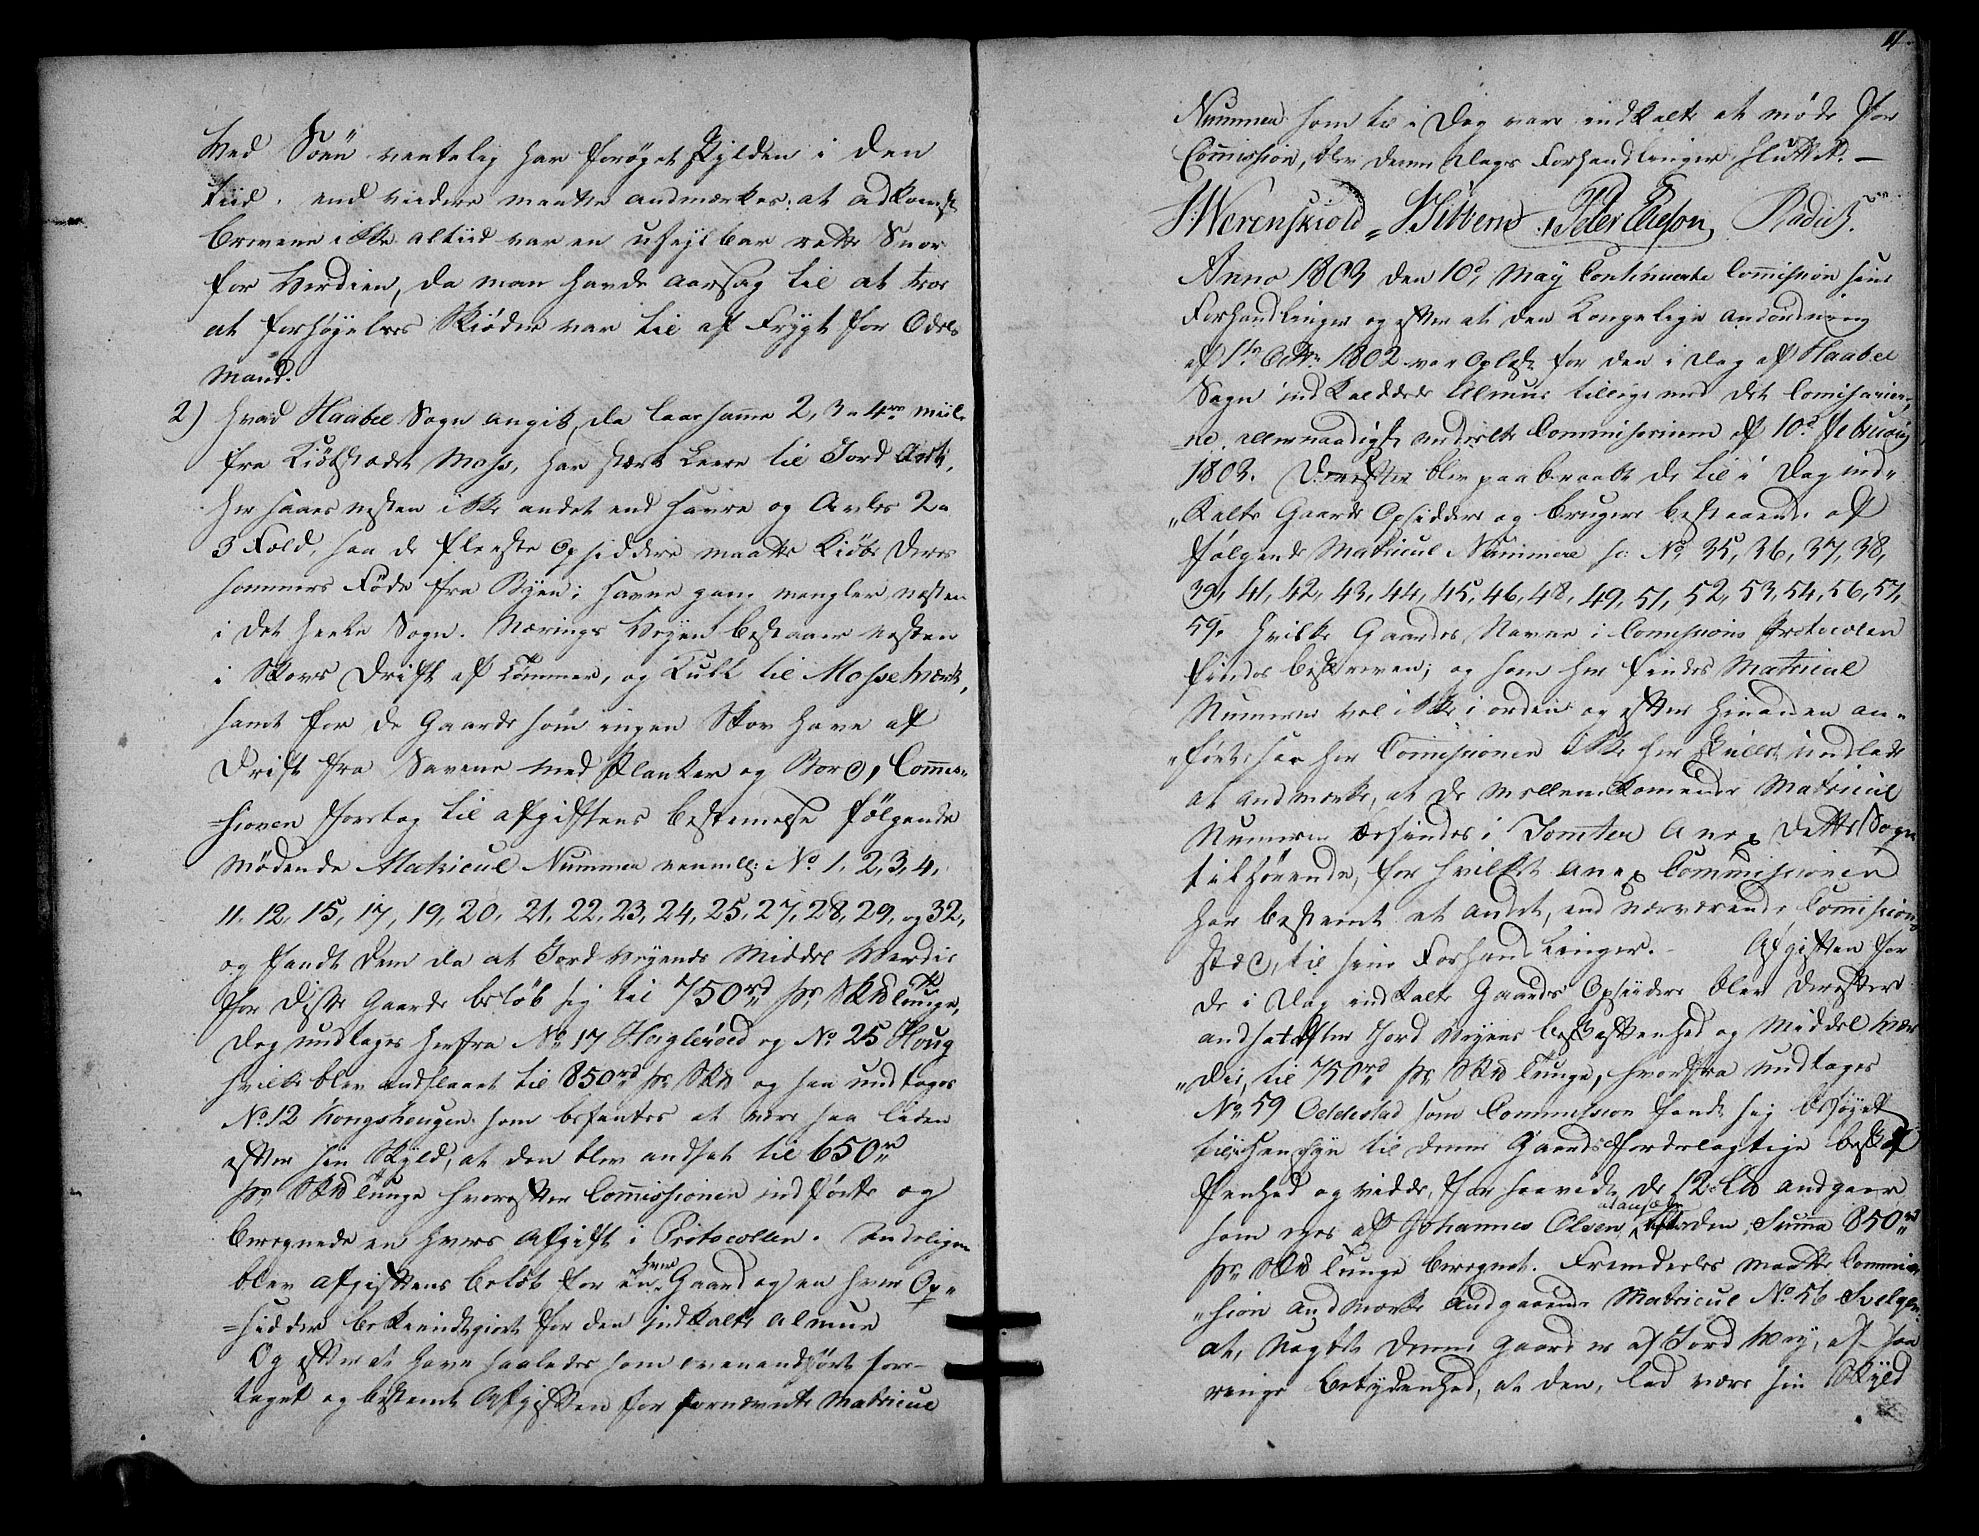 Ved Söen ventelig har forøget Skylden i den
Tiid. end viidere maatte andmærkes: at adkomst
brevene ikke altiid var en ufeylbar rette Snor
for Verdien, da man havde aarsag til at troe
at forhøyelses Skiøder var til af Frygt for Odels
Mand.
2) Hvad Haabøl Sogn angik, da laae samme 2, 3 a 4re miile
fra Kiøbstadet Moss, har stært Leere til Jord Art,
her saaes næsten ikke andet end Havre og Avles 2 a
3 Fold, saa de fleeste Opsiddere maatte Kiøbe deres
sommers Føde fra Byen; Havne gang mangler næsten
i det heele Sogn. Nærings Veyen bestaaer næsten
i Skovs Drift af Tømmer, og Kull til Mosse Værk,
samt for de Gaarde som ingen Skov have af
Drift fra Savene med Planker og Bord, Commis=
=sionen foretog til afgiftens bestemmelse følgende
Mødende Matricul Nummere nemlig: No 1, 2, 3, 4,
11, 12, 15, 17, 19, 20, 21, 22, 23, 24, 25, 27, 28, 29, og 32,
og fandt dem da at Jord Veyens Middel Værdie
for disse Gaarde beløb sig til 750 rd pr Skd Tunge,
dog undtages herfra No 17 Haglerød og No 25 Houg
hvilke blev andslaaet til 850 rd pr Skd og saa undtoges
No 12 Kongshougen som befantes at være saa liden
efter sin Skyld, at den blev ansat til 650 rd
pr Skd Tunge hvorefter Commissionen indførte og
beregnede en hvers Afgift i Protocollen. Endeligen
blev afgiftens beløb for en hver Gaard og en hver Op=
=sidder bekiendtgiort for den indkalte Almue
Og efter at have saaledes som ovenandført fore=
taget og bestemt Afgiften for fornævnte Matricul
11.
Nummer som til i Dag vare indkalte at møde for
Commission, blev denne Dags Forhandlinger sluttet. —
Werenskiold = Sibbern. Peder Elieson, Radich.
Anno 1803 den 10de May Continuerte Commission sine
Forhandlinger og efter at den Kongelige Anordning
af 1ste Octbr 1802 var Oplæst for den i Dag af Haabøl
Sogn indkaldede Almue tillige med det Comissarier=
ne allernaadigst meddelte Commissorium af 10de Februarij
1803. Derefter blev paaraabt de til i Dag ind=
=kalte Gaards Opsiddere og brugere bestaaende af
følgende Matricul Nummere s: No 35, 36, 37, 38,
39, 41, 42, 43, 44, 45, 46, 48, 49, 51, 52, 53, 54, 56, 57,
59. hvilke Gaardes Navne i Comissions Protocollen
findes beskreven; og som her findes Matricul
Nummere vel ikke i orden og efter hinanden an=
=førte saa har Comissionen ikke her skullet undlade
at andmærke, at de mellemkomende Matricul
Nummere befindes i Tomter Anex dette Sogn
tilhørende, for hvilket Anex Commissionen
har bestemt et andet, end nærværende Commissions
sted, til sine Forhandlinger. — Afgiften for
de i Dag indkalte Gaards Opsiddere blev derefter
andsat efter Jord Veyens beskaffenhed og Middel Vær
=die, til 750 rd pr Skd Tunge, hvorfra undtages
No 59 Oddestad som Commission fandt sig beføyet
til i Hensyn til denne Gaards fordelagtige beskaf
fenhed og vidde, for saavidt de 12 Ld andgaaer
som eyes af Johannes Olsen, at ansætte efter den Summa 850 rd
pr Skd Tunge beregnet. Fremdeeles maatte Commis=
=sion andmærke andgaaende Matricul No 56 Svelgen
at, Magten denne gaard er af Jord Vey, af saa
ringe betydenhed, at den, lad være sin Skyld